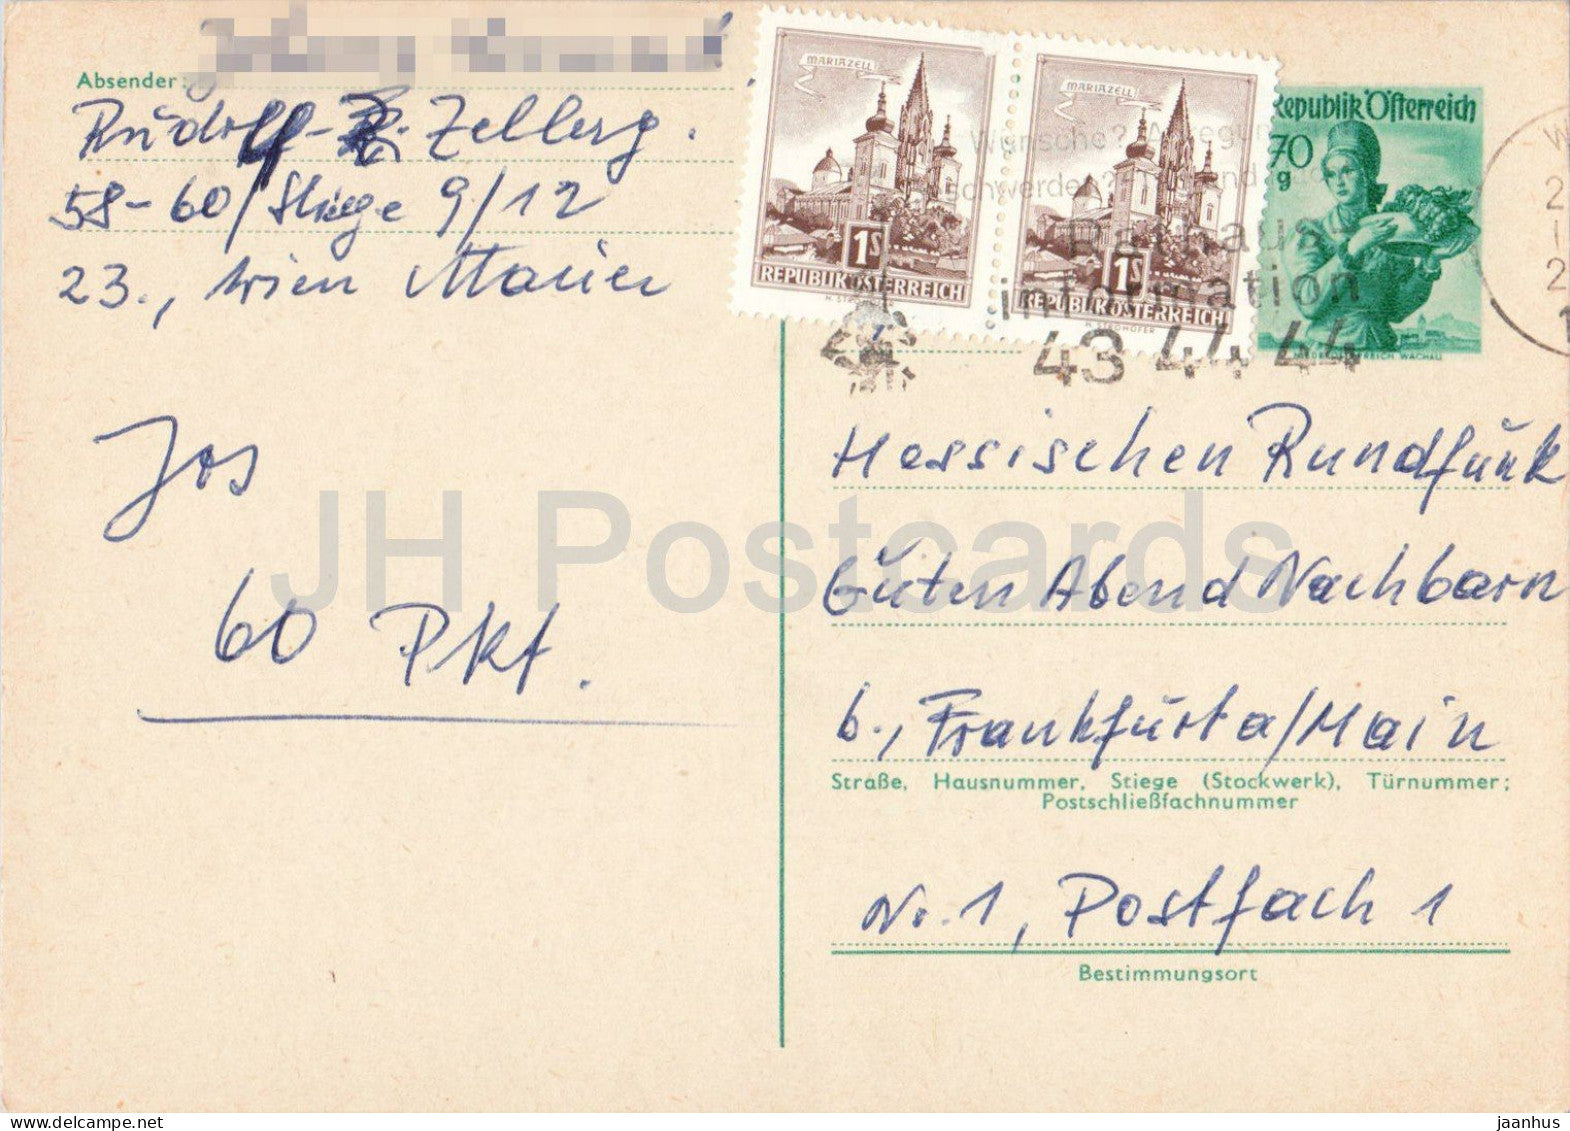 Absender:
Rudolf-  Zellerg.
58-60/Stiege 9/12
23., Wien Mauer
Jos
60 Pkt.
MARIAZELL
1S
REPUBLIK ÖSTERREICH
MARIAZELL
1S
REPUBLIK ÖSTERREICH
H. STROHOFER
Republik Österreich
70
g
NIEDERÖSTERREICH WACHAU
Wünsche?
Beschwerden?
Rathaus
information
43 44 44
Hessischen Rundfunk
Guten Abend Nachbarn
6., Frankfurt a/Main
Straße, Hausnummer, Stiege (Stockwerk), Türnummer;
Postschließfachnummer
Nr. 1, Postfach 1
Bestimmungsort
JH Postcards
jaanhus